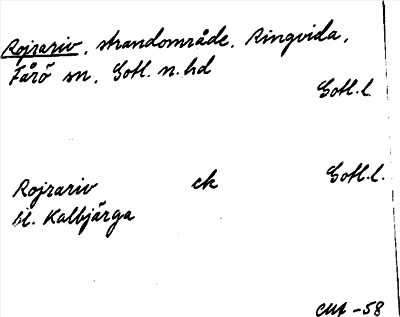 Rojrariv, strandområde, Ringvida,
Fårö sn, Gotl. n. hd
Gotl. l.
Rojrariv ck Gotl. l.
bl. Kalbjärga
-58